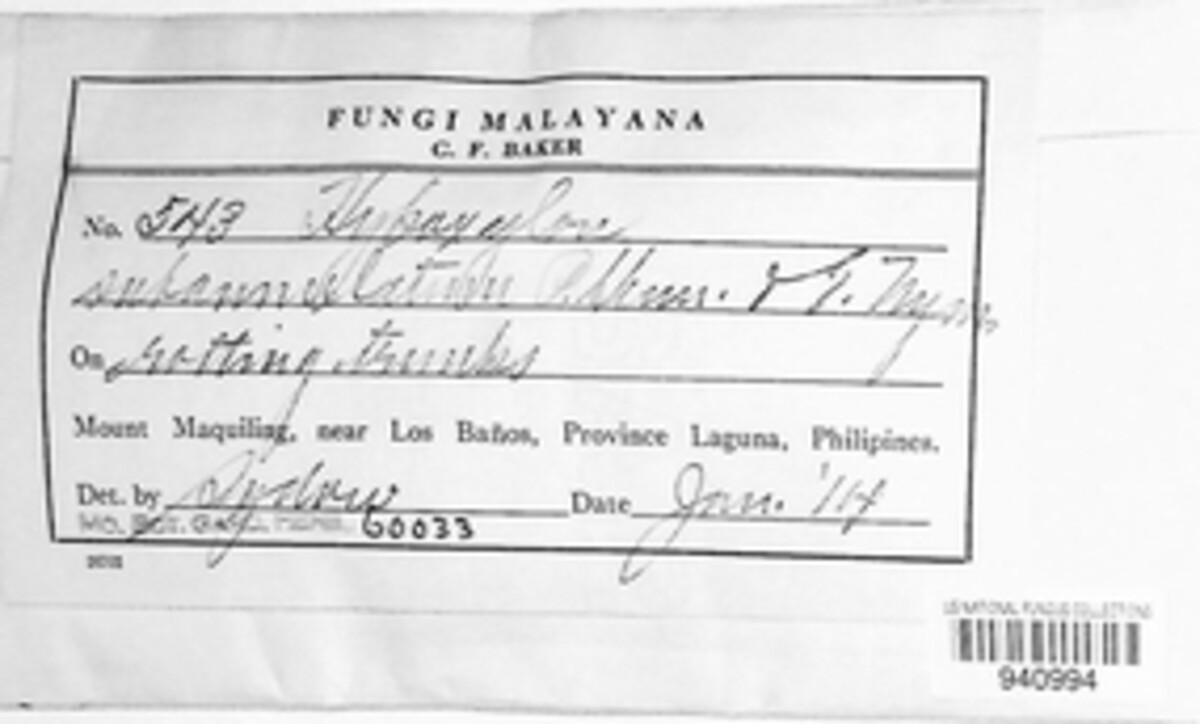 FUNGI MALAYANA
C. F. BAKER
No. 543 Hypoxylon
subannulatum P. Henn. & E. Nym.
On rotting trunks
Mount Maquiling, near Los Baños, Province Laguna, Philipines.
Det. by Sydow Date Jan. '14
MO. BOT. GARD. HERB. 60033
US NATIONAL FUNGUS COLLECTIONS
940994